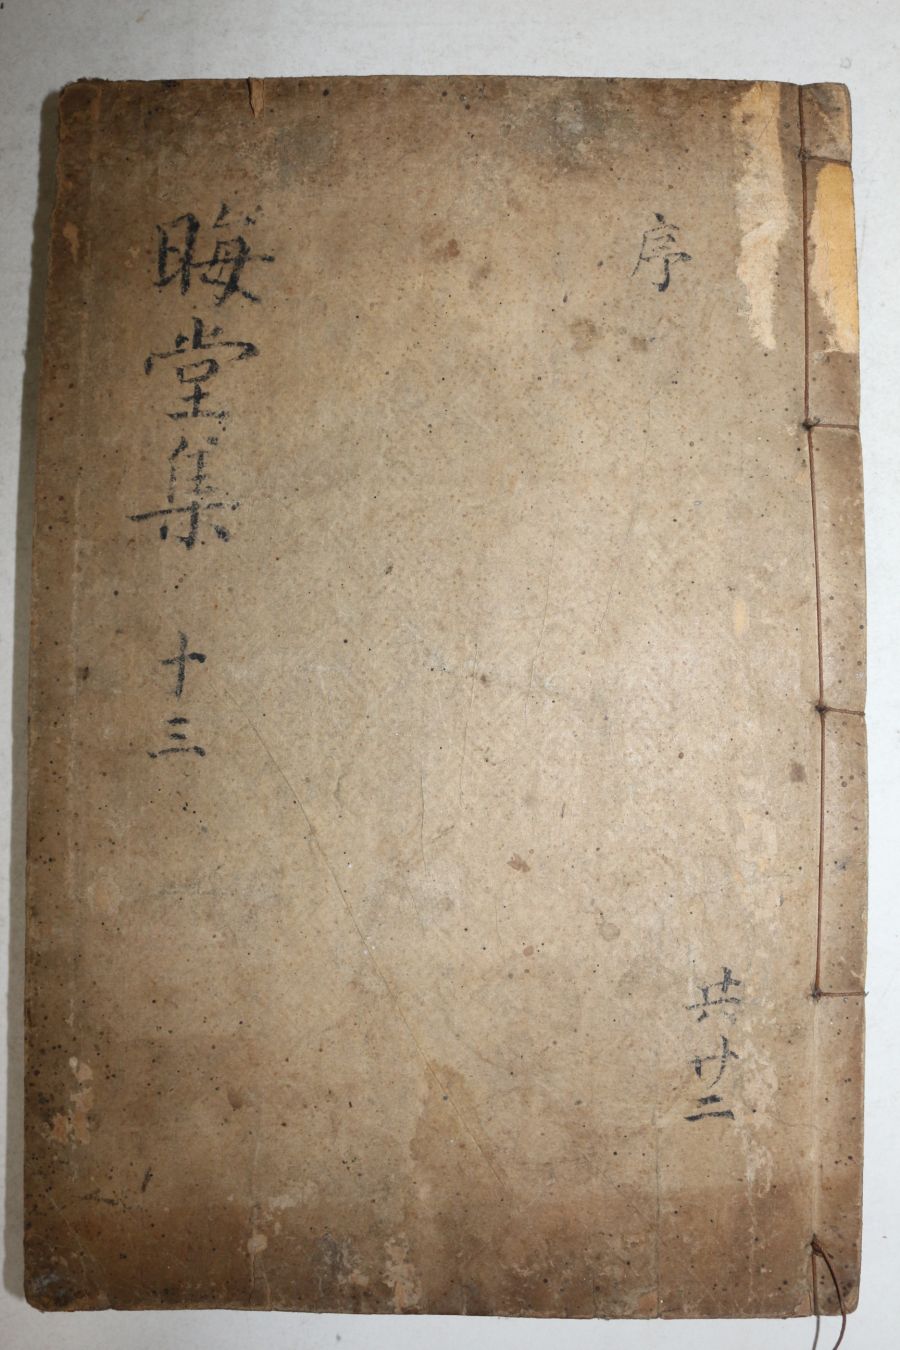 序
共廿二
晦堂集 十三